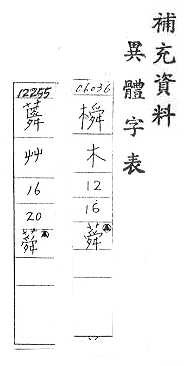 補充資料
異體字表
C6036
橓
木
12
16
蕣
12255
艸
16
20
蕣